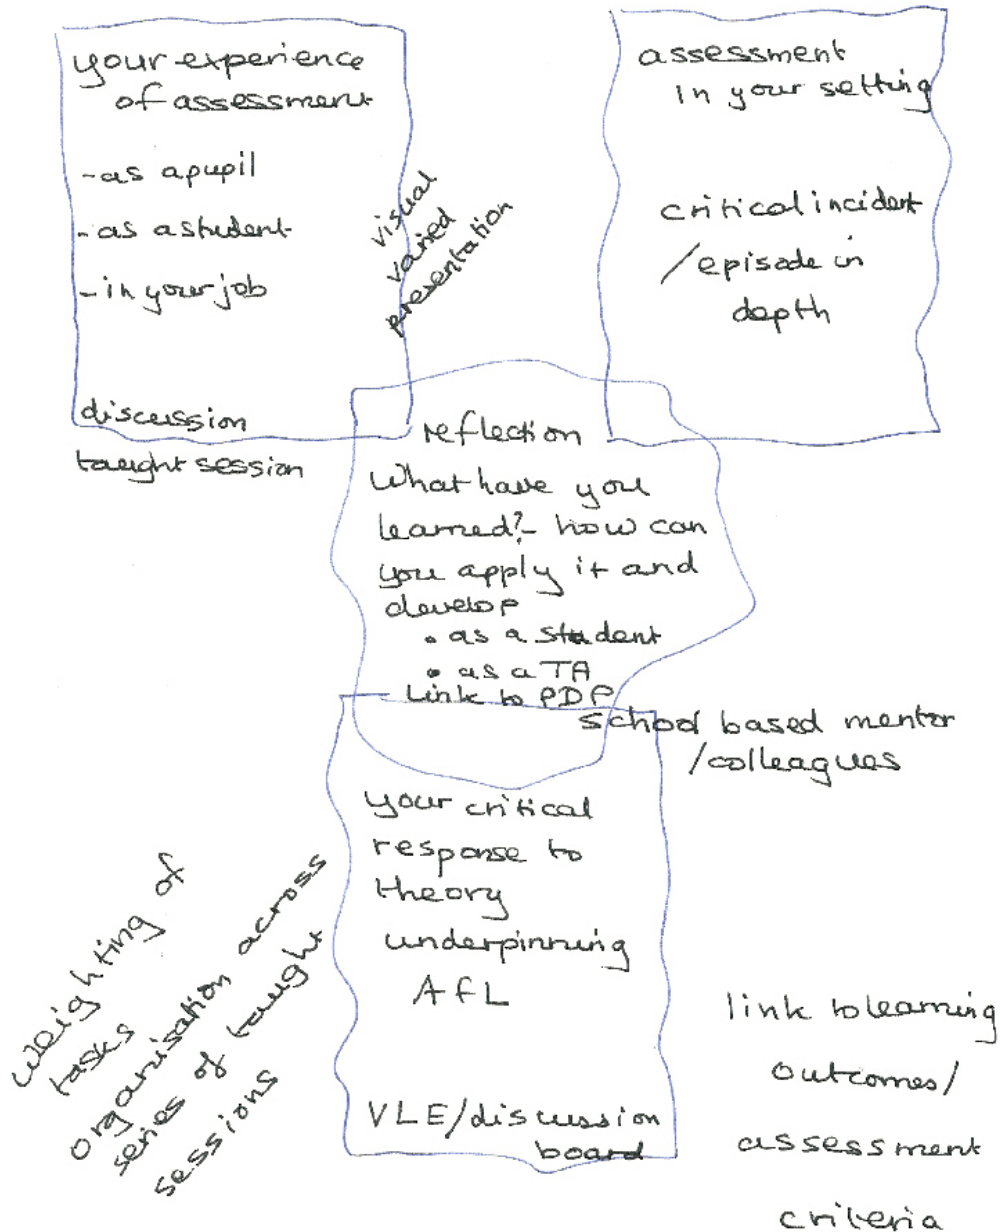 your experience
of assessment
- as a pupil
- as a student
- in your job
discussion
taught session
visual
varied
presentation
assessment
in your setting
critical incident
/episode in
depth
reflection
What have you
learned? - how can
you apply it and
develop
• as a student
• as a TA
Link to PDP
school based mentor
/colleagues
your critical
response to
theory
underpinning
AfL
VLE/discussion
board
weighting of
tasks
organisation across
series of taught
sessions
link to learning
outcomes/
assessment
criteria